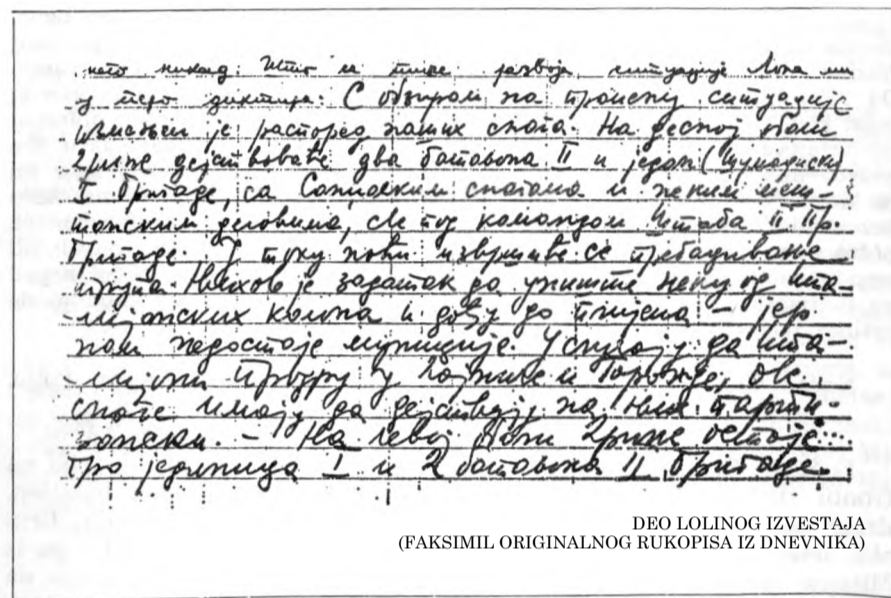 као никад. Што се тиче развоја ситуације Лола ми
у перо диктира: С обзиром на промену ситуације
измењен је распоред наших снага. На десној обали
Дрине дејствоваће два батаљона II и један (Шумадиски)
I бригаде, са Санџачким снагама и неким
танским деловима, све под командом Штаба II Пр.
Бригаде. У току ноћи извршиће се пребацивање
трупа. Њихов је задатак да униште неку од ита-
лијанских колона и дођу до плијена – јер
нам недостаје муниције. У случају да Ита-
лијани продру у Чајниче и Горажде, ове
снаге имају да дејствују на њих парти-
зански. – На левој обали Дрине остаје
про јединица I и 2 батаљона II Бригаде.
DEO LOLINOG IZVESTAJA
(FAKSIMIL ORIGINALNOG RUKOPISA IZ DNEVNIKA)